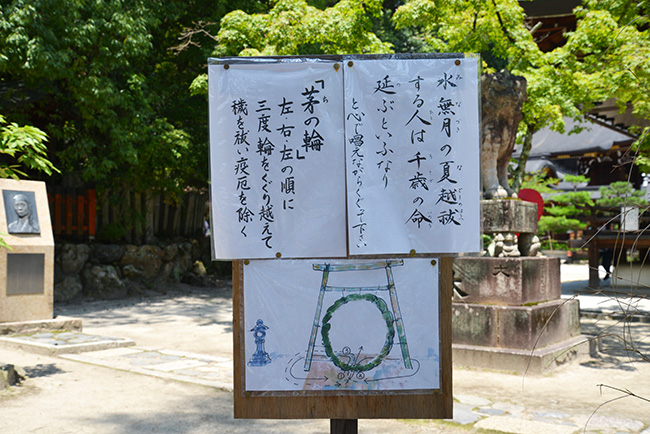 水無月の夏越祓
みなづき
する人は千歳の命
延ぶといふなり
と心で唱えながらくぐって下さい
「茅の輪」
ち
左右左の順に
三度輪をくぐり越えて
穢を祓い疫厄を除く